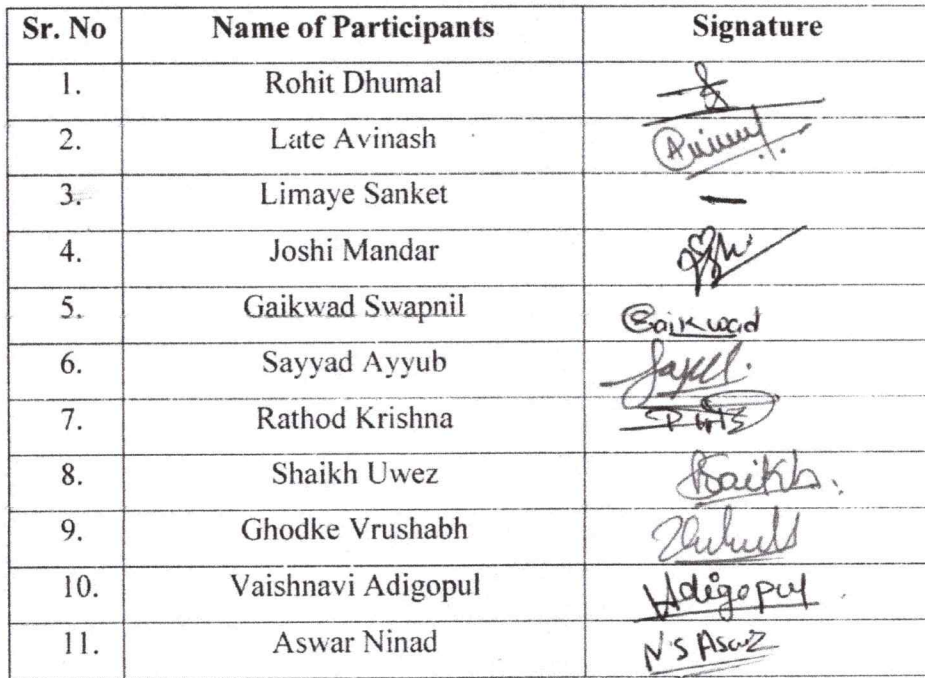 Sr. No Name of Participants Signature
1. Rohit Dhumal
2. Late Avinash
3. Limaye Sanket —
4. Joshi Mandar
5. Gaikwad Swapnil Gaikwad
6. Sayyad Ayyub
7. Rathod Krishna
8. Shaikh Uwez
9. Ghodke Vrushabh
10. Vaishnavi Adigopul Adigopul
11. Aswar Ninad N.S Aswar